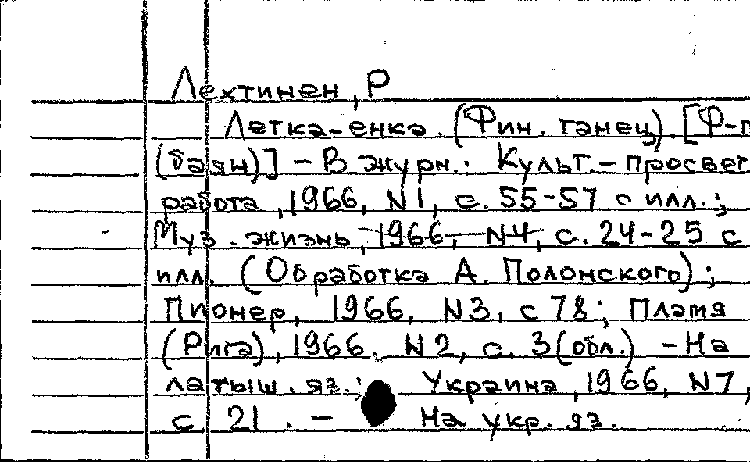 Лехтинен, Р
Летка-енка. (Фин. танец). [Ф-п
(баян)] - В журн.: Культ.-просвет
работа, 1966, N1, с. 55-57 с илл.;
Муз. жизнь, 1966, N4, с. 24-25 с
илл. (Обработка А. Полонского);
Пионер, 1966, N3, с 78; Платя
(Рига), 1966, N2, с. 3 (обл.) - На
латыш. яз.; Украина, 1966, N7,
с 21. - На укр. яз.